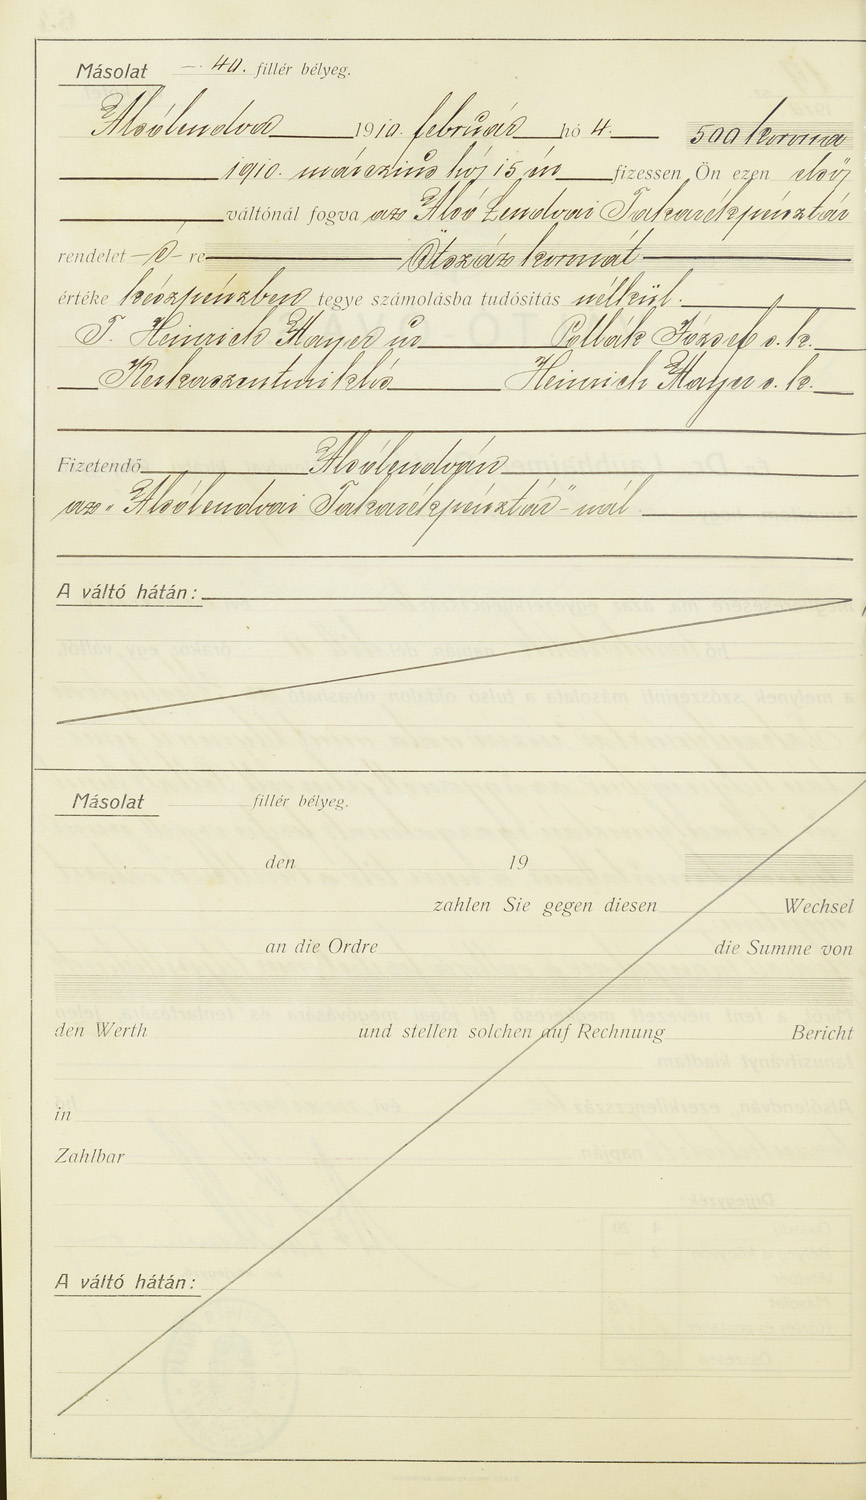 Másolat — 40. fillér bélyeg.
Alsólendva 1910. február hó 4. 500 korona
1910. márczius hó 15 én fizessen Ön ezen első
váltónál fogva az Alsó Lendvai Takarékpénztár
rendelet — é — re Ötszáz koronát
értéke készpénzben tegye számolásba tudósítás nélkül.
T. Heinrich Mayer úr Pollák József s. k.
Kerkaszentmiklós Heinrich Mayer s. k.
Fizetendő Alsólendván
az „Alsólendvai Takarékpénztár"-nál
A váltó hátán:
Másolat fillér bélyeg.
den 19
zahlen Sie gegen diesen Wechsel
an die Ordre die Summe von
den Werth und stellen solchen auf Rechnung Bericht
in
Zahlbar
A váltó hátán: